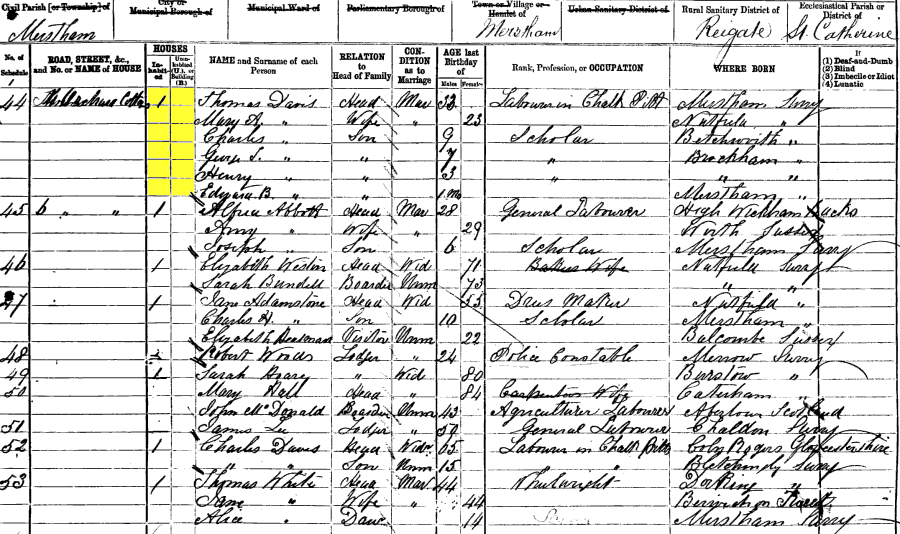 Civil Parish [or Township] of
City or Municipal Borough of
Municipal Ward of
Parliamentary Borough of
Town or Village or Hamlet of
Urban Sanitary District of
Rural Sanitary District of
Ecclesiastical Parish or District of
Merstham Merstham Reigate St. Catherine
No. of Schedule
ROAD, STREET, &c., and No. or NAME of HOUSE
HOUSES
Inhabited
Uninhabited (U.), or Building (B.)
NAME and Surname of each Person
RELATION to Head of Family
CONDITION as to Marriage
AGE last Birthday of
Males Females
Rank, Profession, or OCCUPATION
WHERE BORN
If
(1) Deaf-and-Dumb
(2) Blind
(3) Imbecile or Idiot
(4) Lunatic
44 1 Thomas Davis Head Mar 32 Labourer in Chalk Pitt Merstham Surry
Mary A. " Wife " 23 Nutfield "
Charles " Son 9 Scholar Betchworth "
" " 7 " Brockham "
Henry " " 3 " " "
" " Merstham "
45 6 " " 1 Abbott Head Mar 28 General Labourer High Wickham Bucks
Amy " Wife " 29 Worth Sussex
Joseph " Son 6 Scholar Merstham Surry
46 1 Elizabeth Weston Head Wid 71 Nutfield Surry
Sarah Bundell Boarder Unm 73 " "
47 1 Jane Adamstone Head Wid 53 Dress Maker Nutfield "
Charles H. " Son 10 Scholar Merstham "
Elizabeth Visitor Unm 22 Balcombe Sussex
48 Robert Woods Lodger " 24 Police Constable Merrow Surry
49 1 Sarah " Wid 80 Burstow "
50 Mary Hall Head " 84 Carpenters Wife Caterham "
John McDonald Boarder Unm 43 Agricultural Labourer Scotland
51 James Lee Lodger " 50 General Labourer Chaldon Surry
52 1 Charles Daves Head Widr 65 Labourer in Chalk Pitts Coly Rogers Gloucestershire
" " Son Unm 15 Bletchingly Surry
53 1 Thomas White Head Mar 44 Wheelwright Dorking "
Jane " Wife " 44
Alice " Daur 14 Merstham Surry